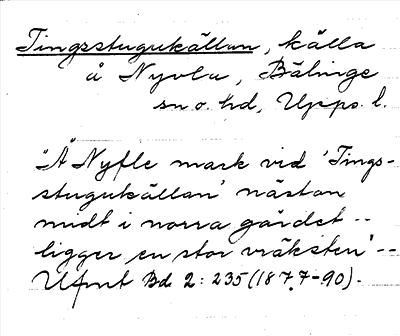 Tingsstugukällan, källa
å Nyvla, Bälinge
sn o. hd, Upps. l.
"Å Nyfle mark vid 'Tings-
stugukällan' nästan
midt i norra gärdet --
ligger en stor vräksten" --
Ufmt Bd 2: 235 (1877-90).